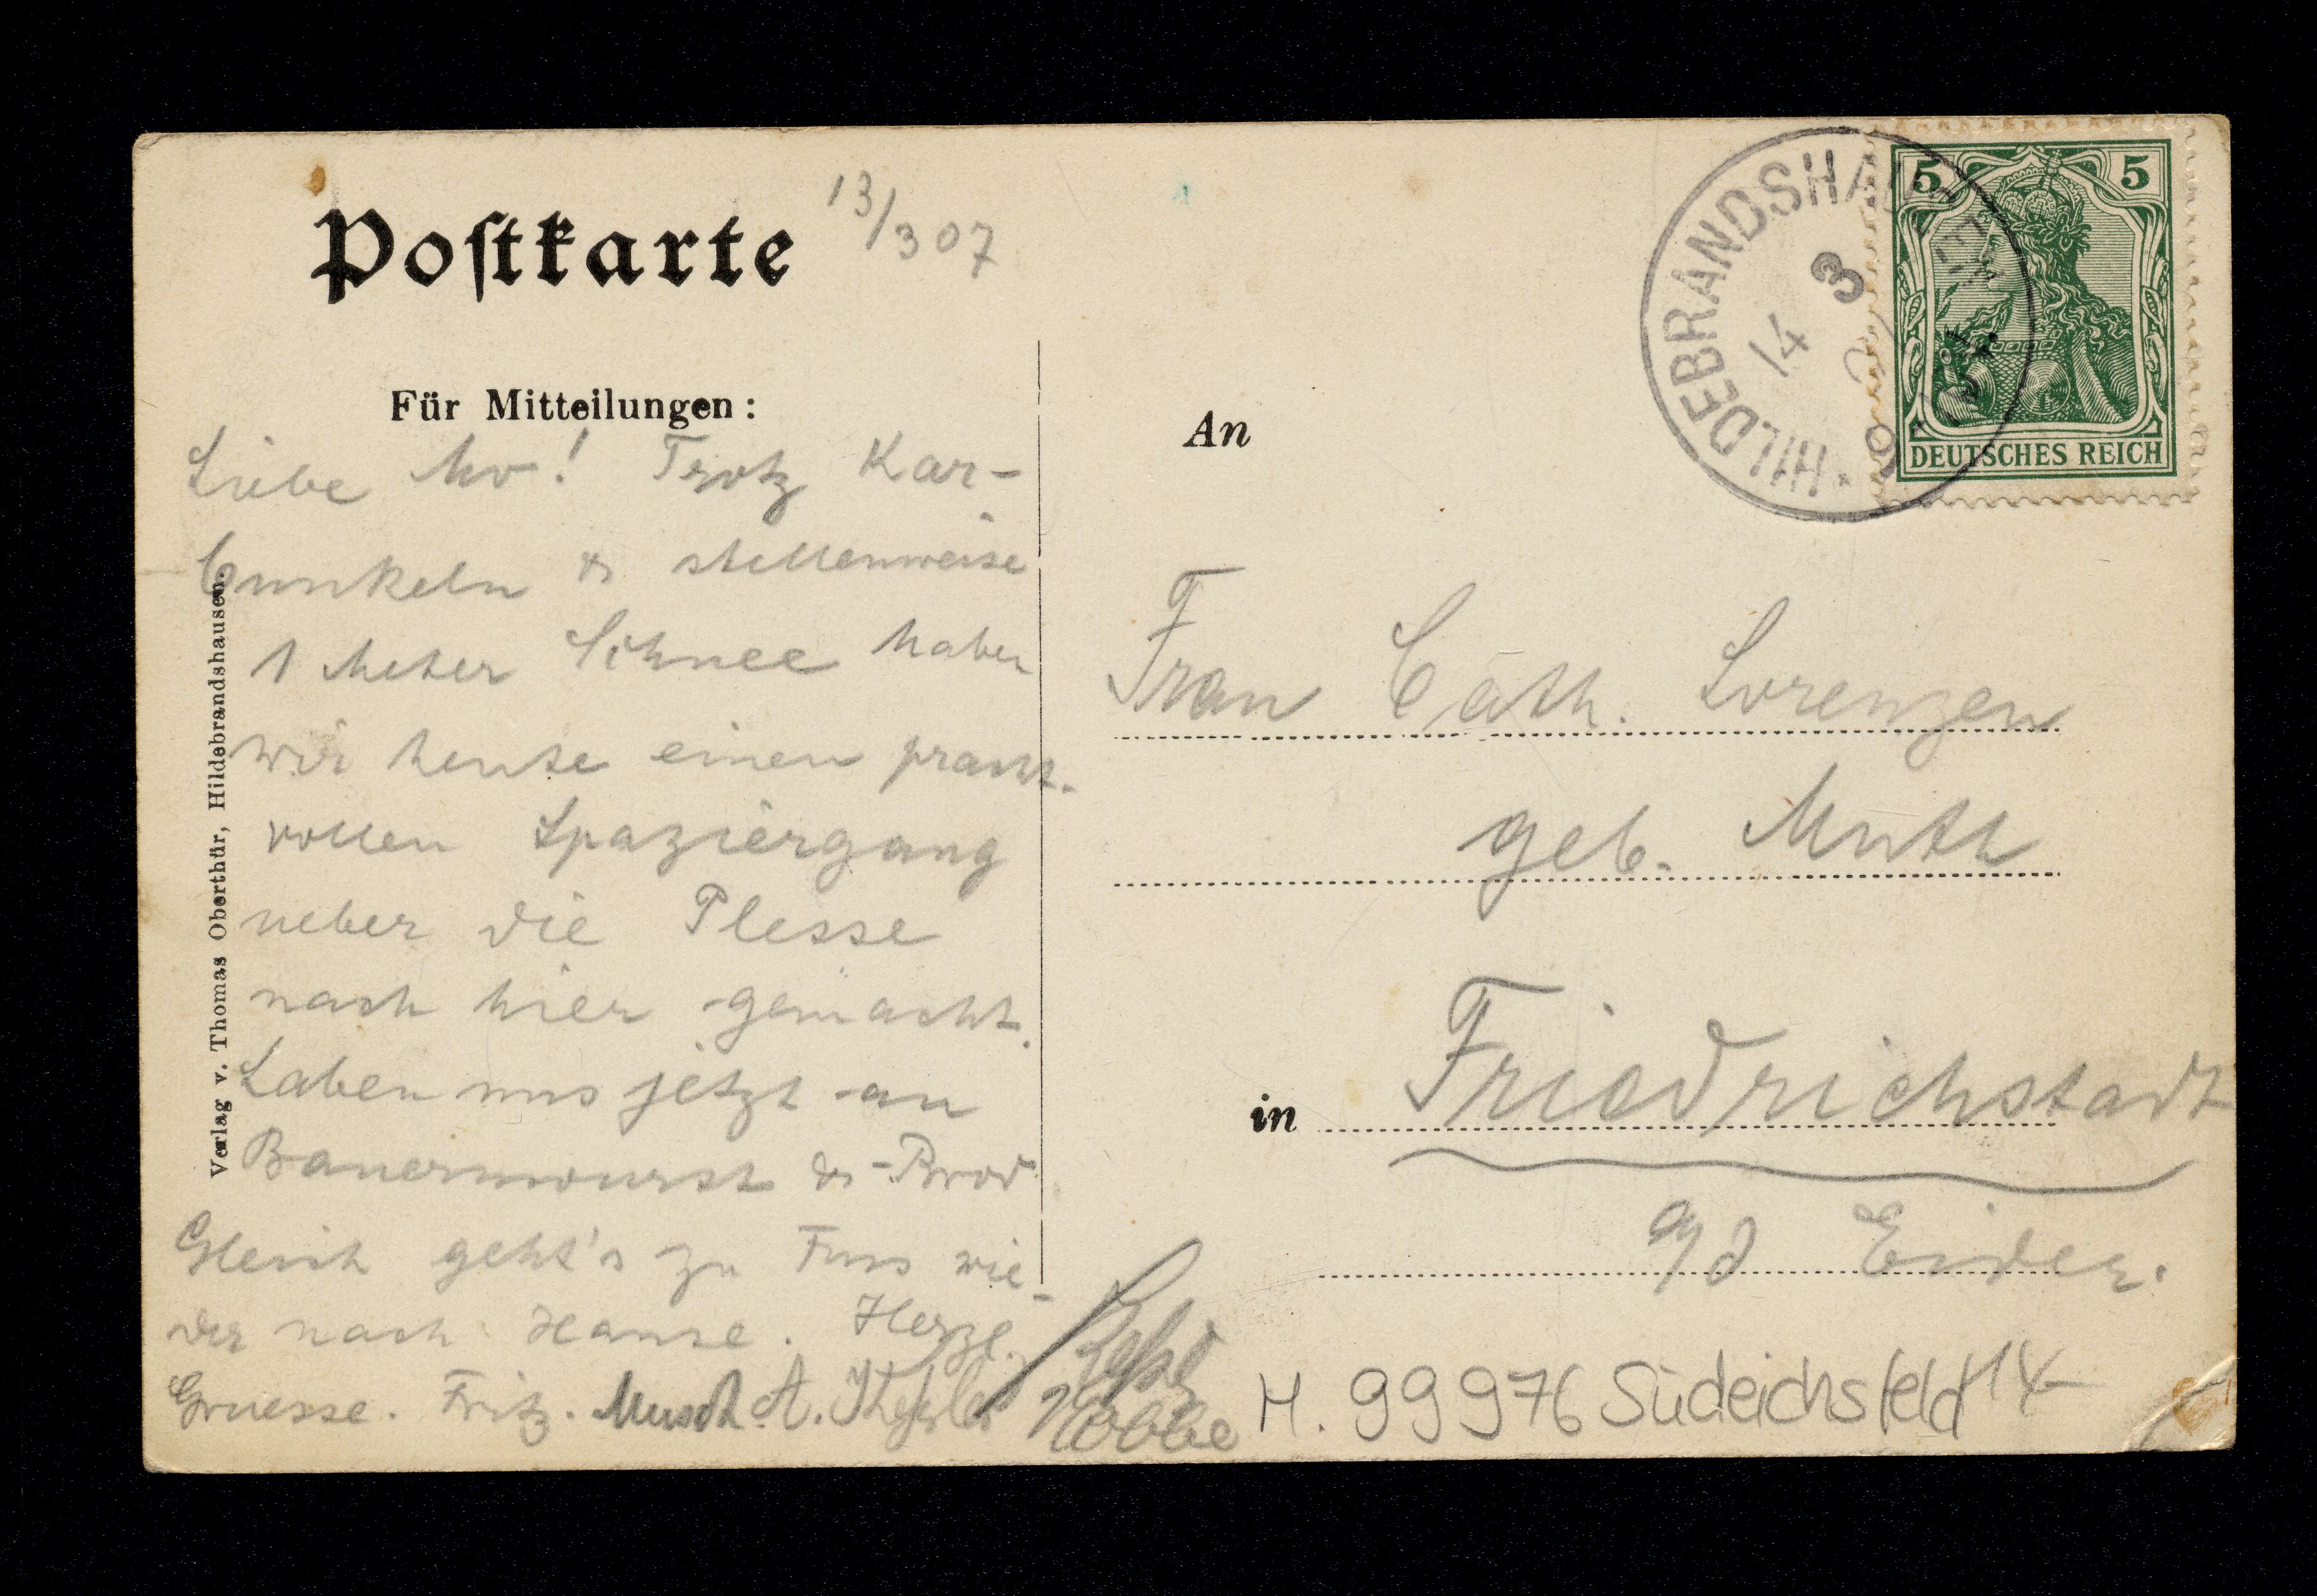 Postkarte
13/3 07
Für Mitteilungen:
Liebe Mo! Trotz Kar-
bunkeln & stellenweise
1 Meter Schnee haben
wir heute einen pracht-
vollen Spaziergang
ueber die Plesse
nach hier gemacht.
Laben uns jetzt an
Bauernwurst & -Brod
Gleich geht's zu Fuss wie-
der nach Hause. Herzl.
Gruesse. Fritz. A.
Verlag v. Thomas Oberthür, Hildebrandshausen.
HILDEBRANDSHAUSEN
14 3
5 5
DEUTSCHES REICH
An
Frau Cath. Lorenzen
geb. Muth
in Friedrichstadt
a/d Eider.
H. 99976 Südeichsfeld 14-